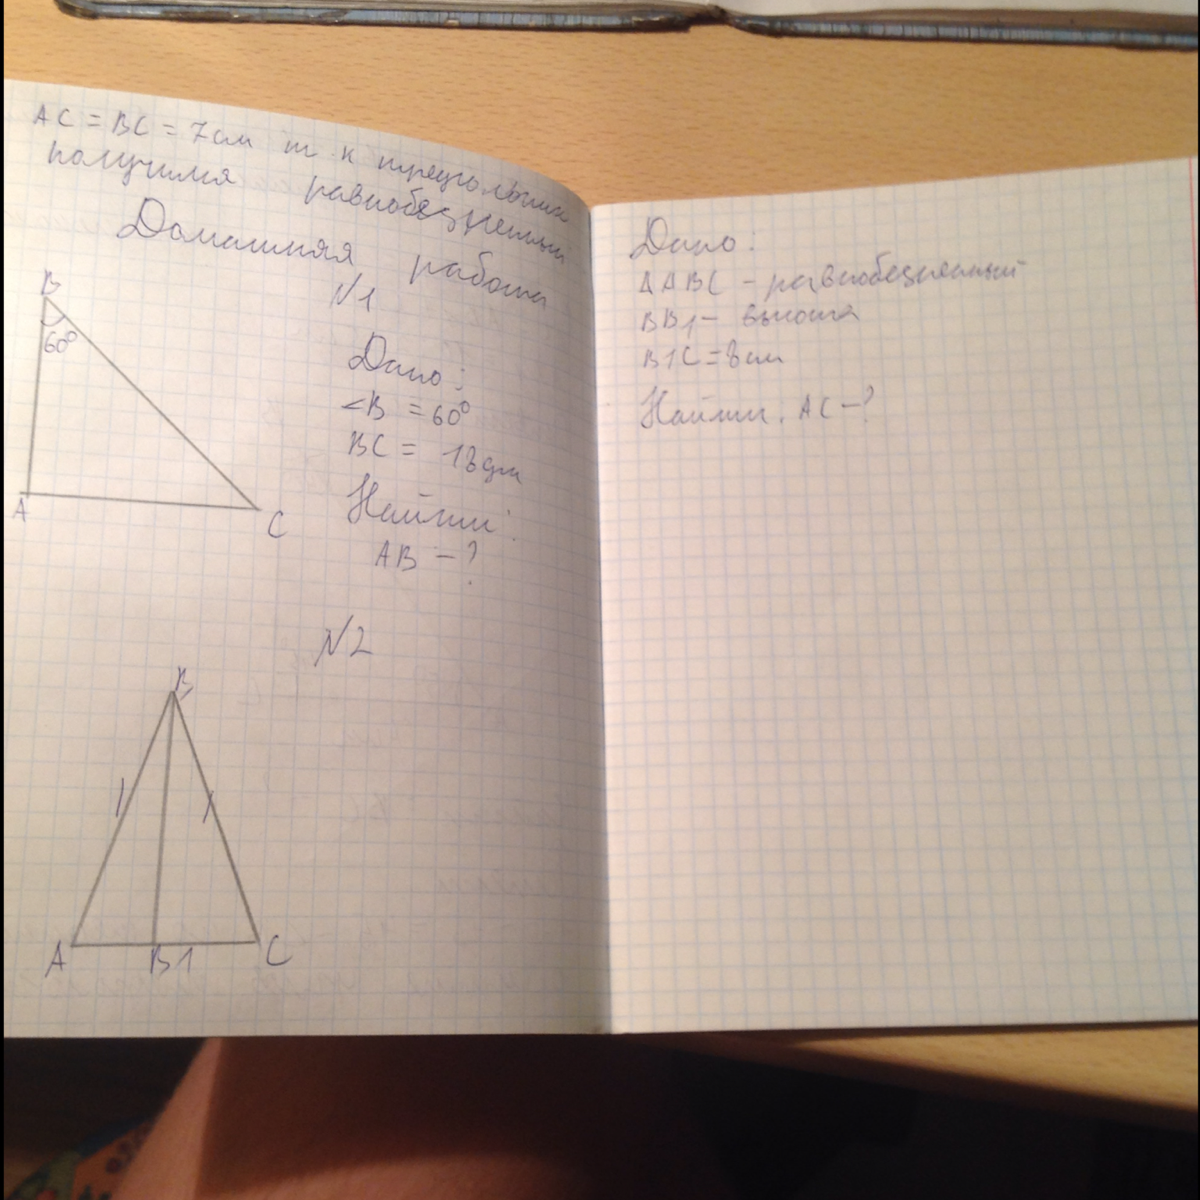 AC = BC = 7см т к треугольник
получился равнобедренный
Домашняя работа
N1
B
60°
A
C
Дано:
∠B = 60°
BC = 18дм
Найти:
AB - ?
N2
B
A
B1
C
Дано:
ΔABC - равнобедренный
BB1 - высота
B1C = 8см
Найти: AC - ?